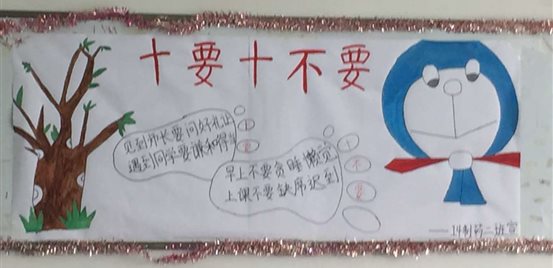 十要十不要
见到师长要问好礼让
遇到同学要谦和得当
十
要
早上不要贪睡懒觉
上课不要缺席迟到
十
不
要
——14制药二班宣